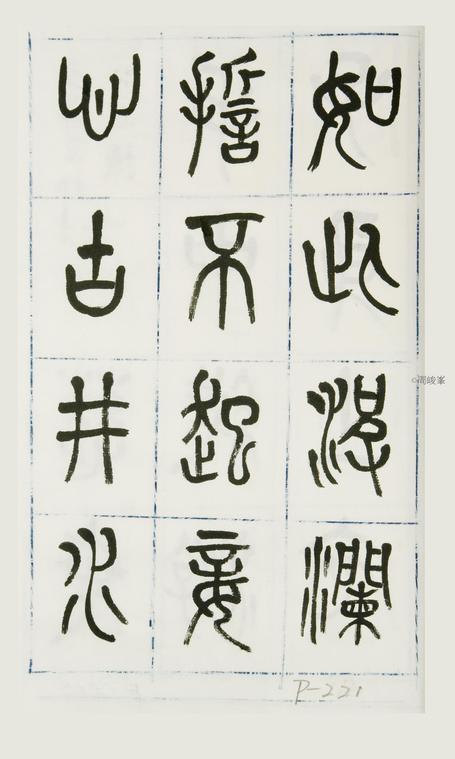 如此波瀾
誓不起妾
心古井水
P-221
©周峻峯